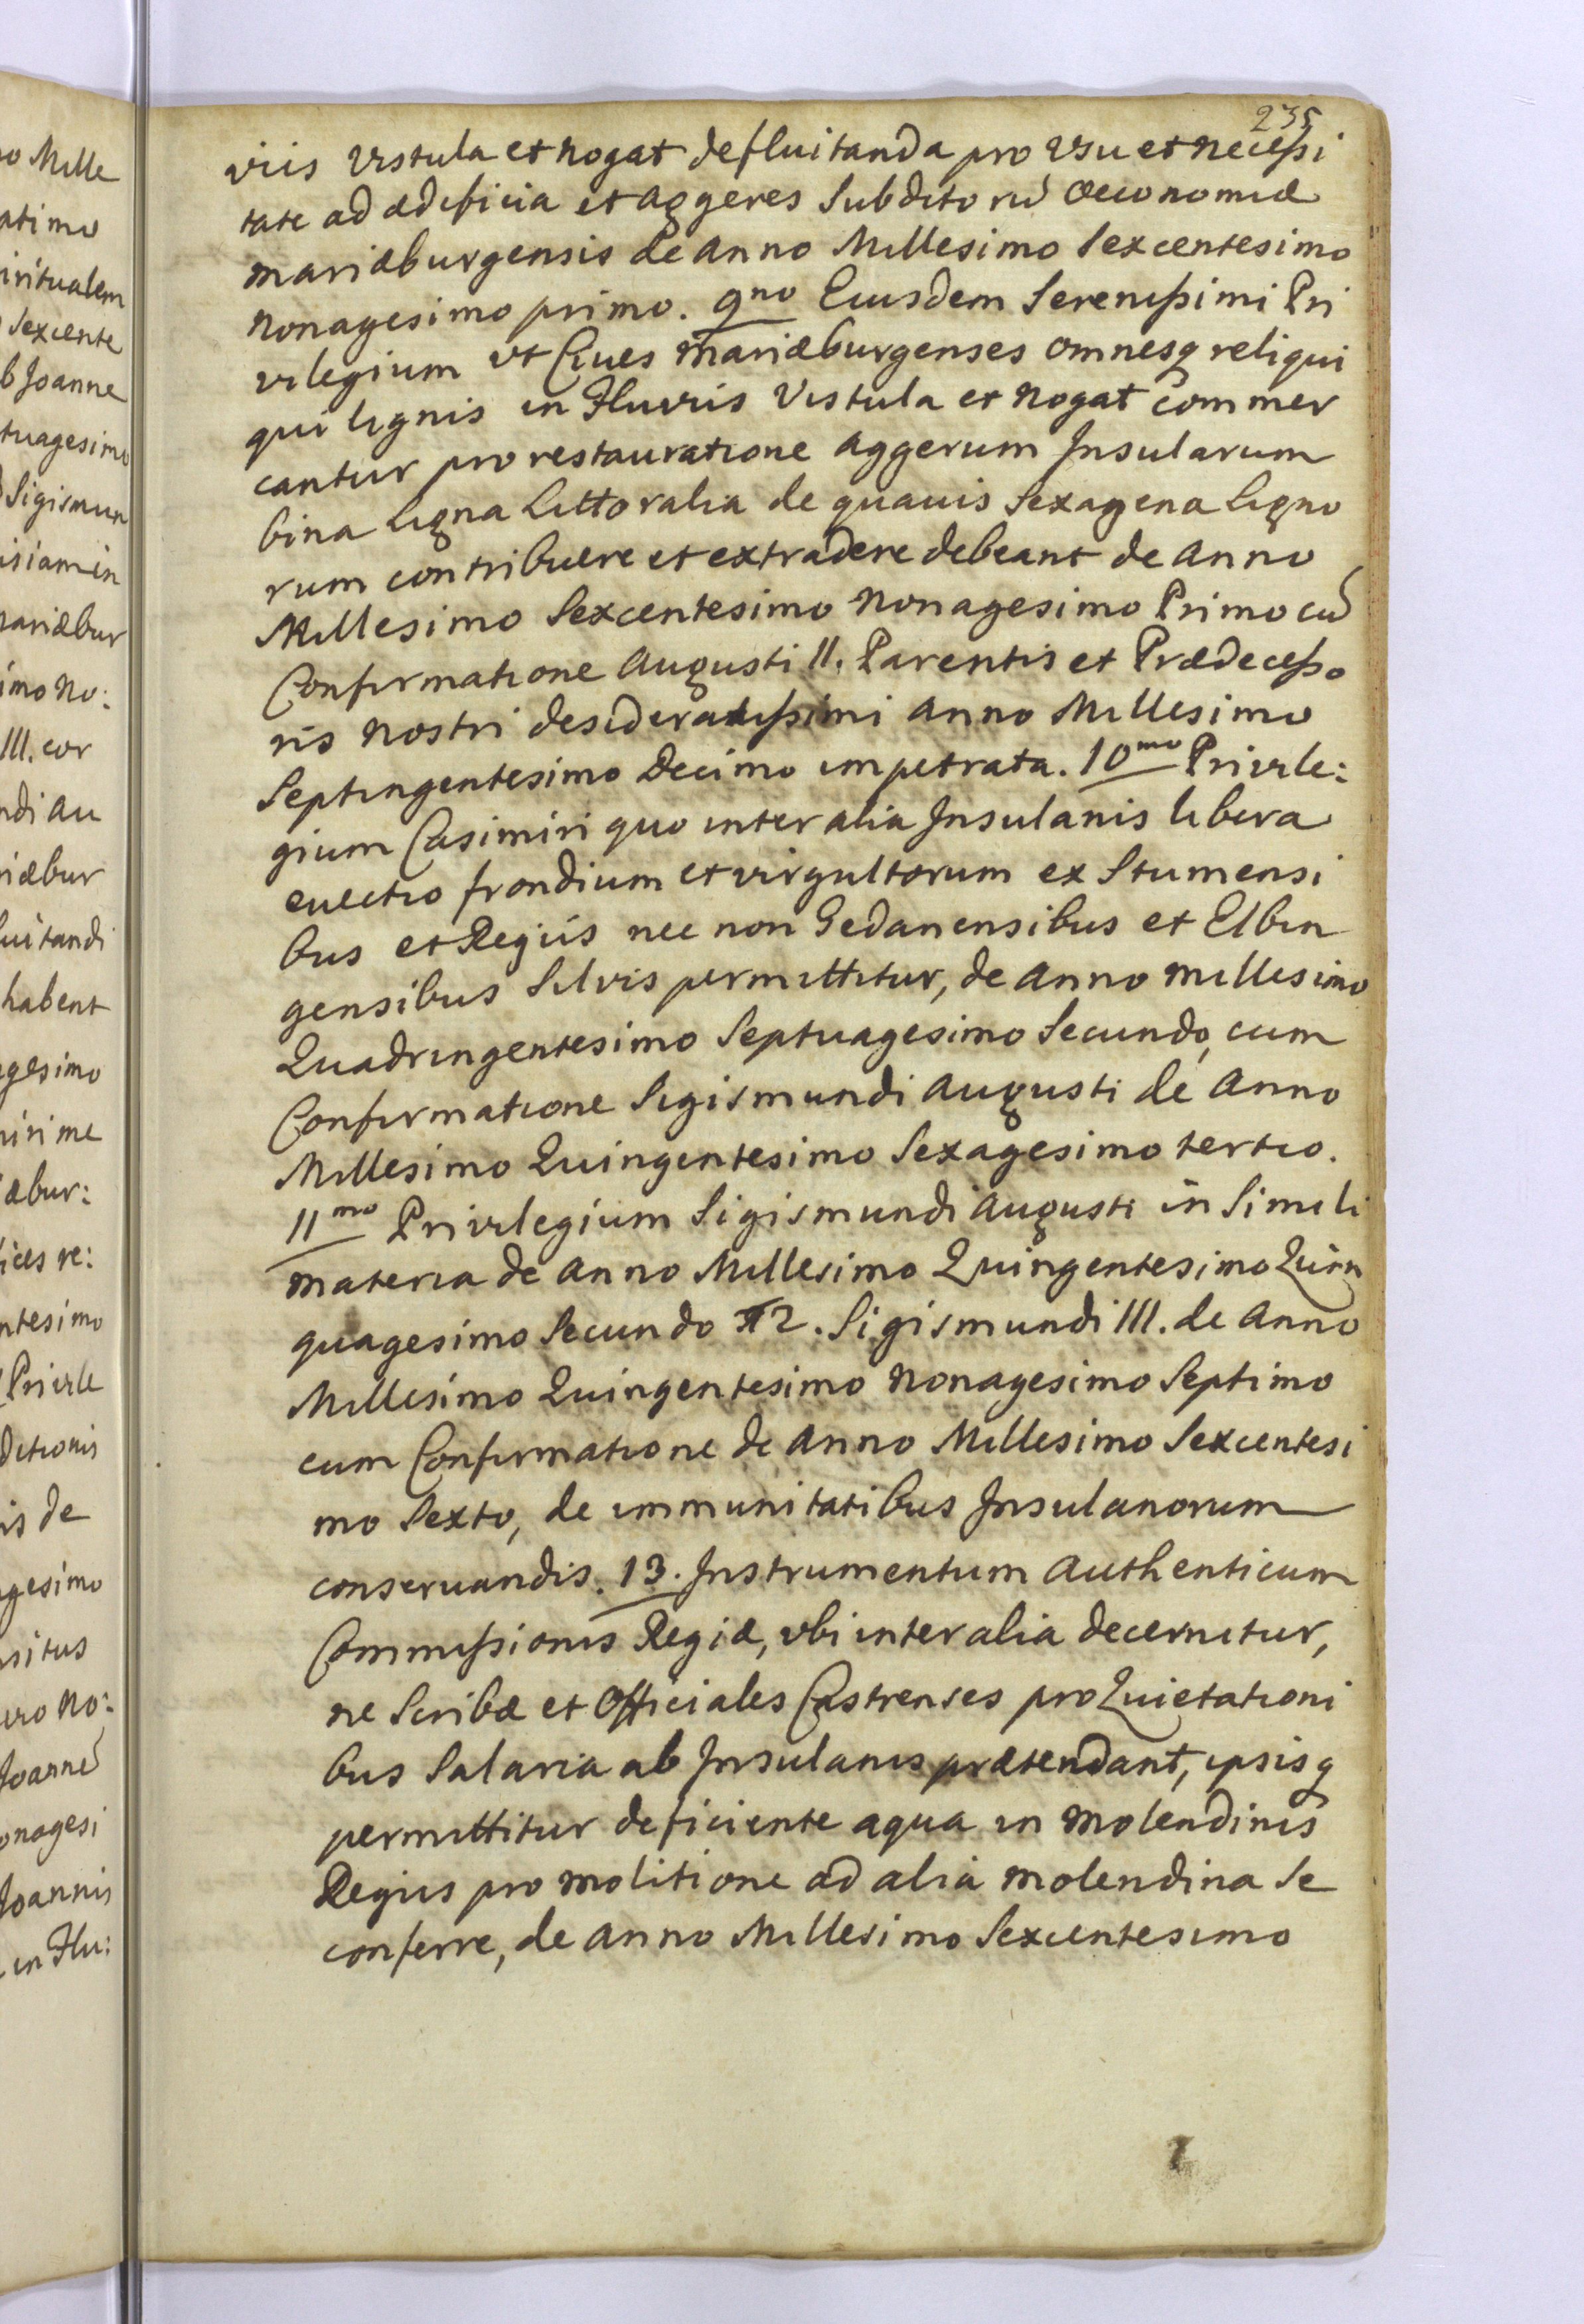 235
viis Vistula et Nogat defluitanda pro Vsu et necessi
tate ad ædificia et aggeres Subditorū Oeconomiæ
Mariæburgensis de Anno Millesimo Sexcentesimo
Nonagesimo primo. 9no Eiusdem Serenissimi Pri
vilegium vt Ciues Mariæburgenses omnesq reliqui
qui lignis in Fluviis Vistula et Nogat commer
cantur pro restauratione Aggerum Insularum
bina Ligna Littoralia de quauis Sexagena Ligno
rum contribuere et extradere debeant de Anno
Millesimo Sexcentesimo Nonagesimo Primo cū
Confirmatione Augusti II. Parentis et Prædecesso
ris Nostri desideratissimi Anno Millesimo
Septingentesimo Decimo impetrata. 10mo Privile:
gium Casimiri quo inter alia Insulanis libera
euectio frondium et virgultorum ex Stumensi
bus et Regiis nec non Gedanensibus et Elbin
gensibus Silvis permittitur, de Anno Millesimo
Quadringentesimo Septuagesimo Secundo, cum
Confirmatione Sigismundi Augusti de Anno
Millesimo Quingentesimo Sexagesimo tertio.
11mo Privilegium Sigismundi Augusti in Simili
materia de Anno Millesimo Quingentesimo Quin
quagesimo Secundo 12. Sigismundi III. de Anno
Millesimo Quingentesimo Nonagesimo Septimo
cum Confirmatione de Anno Millesimo Sexcentesi
mo Sexto, de immunitatibus Insulanorum
conseruandis. 13. Instrumentum Authenticum
Commissionis Regiæ, vbi inter alia decernitur,
ne Scribæ et Officiales Castrenses pro Quietationi
bus Salaria ab Insulanis prætendant, ipsisq
permittitur deficiente aqua in Molendinis
Regiis pro molitione ad alia Molendina Se
conferre, de Anno Millesimo Sexcentesimo